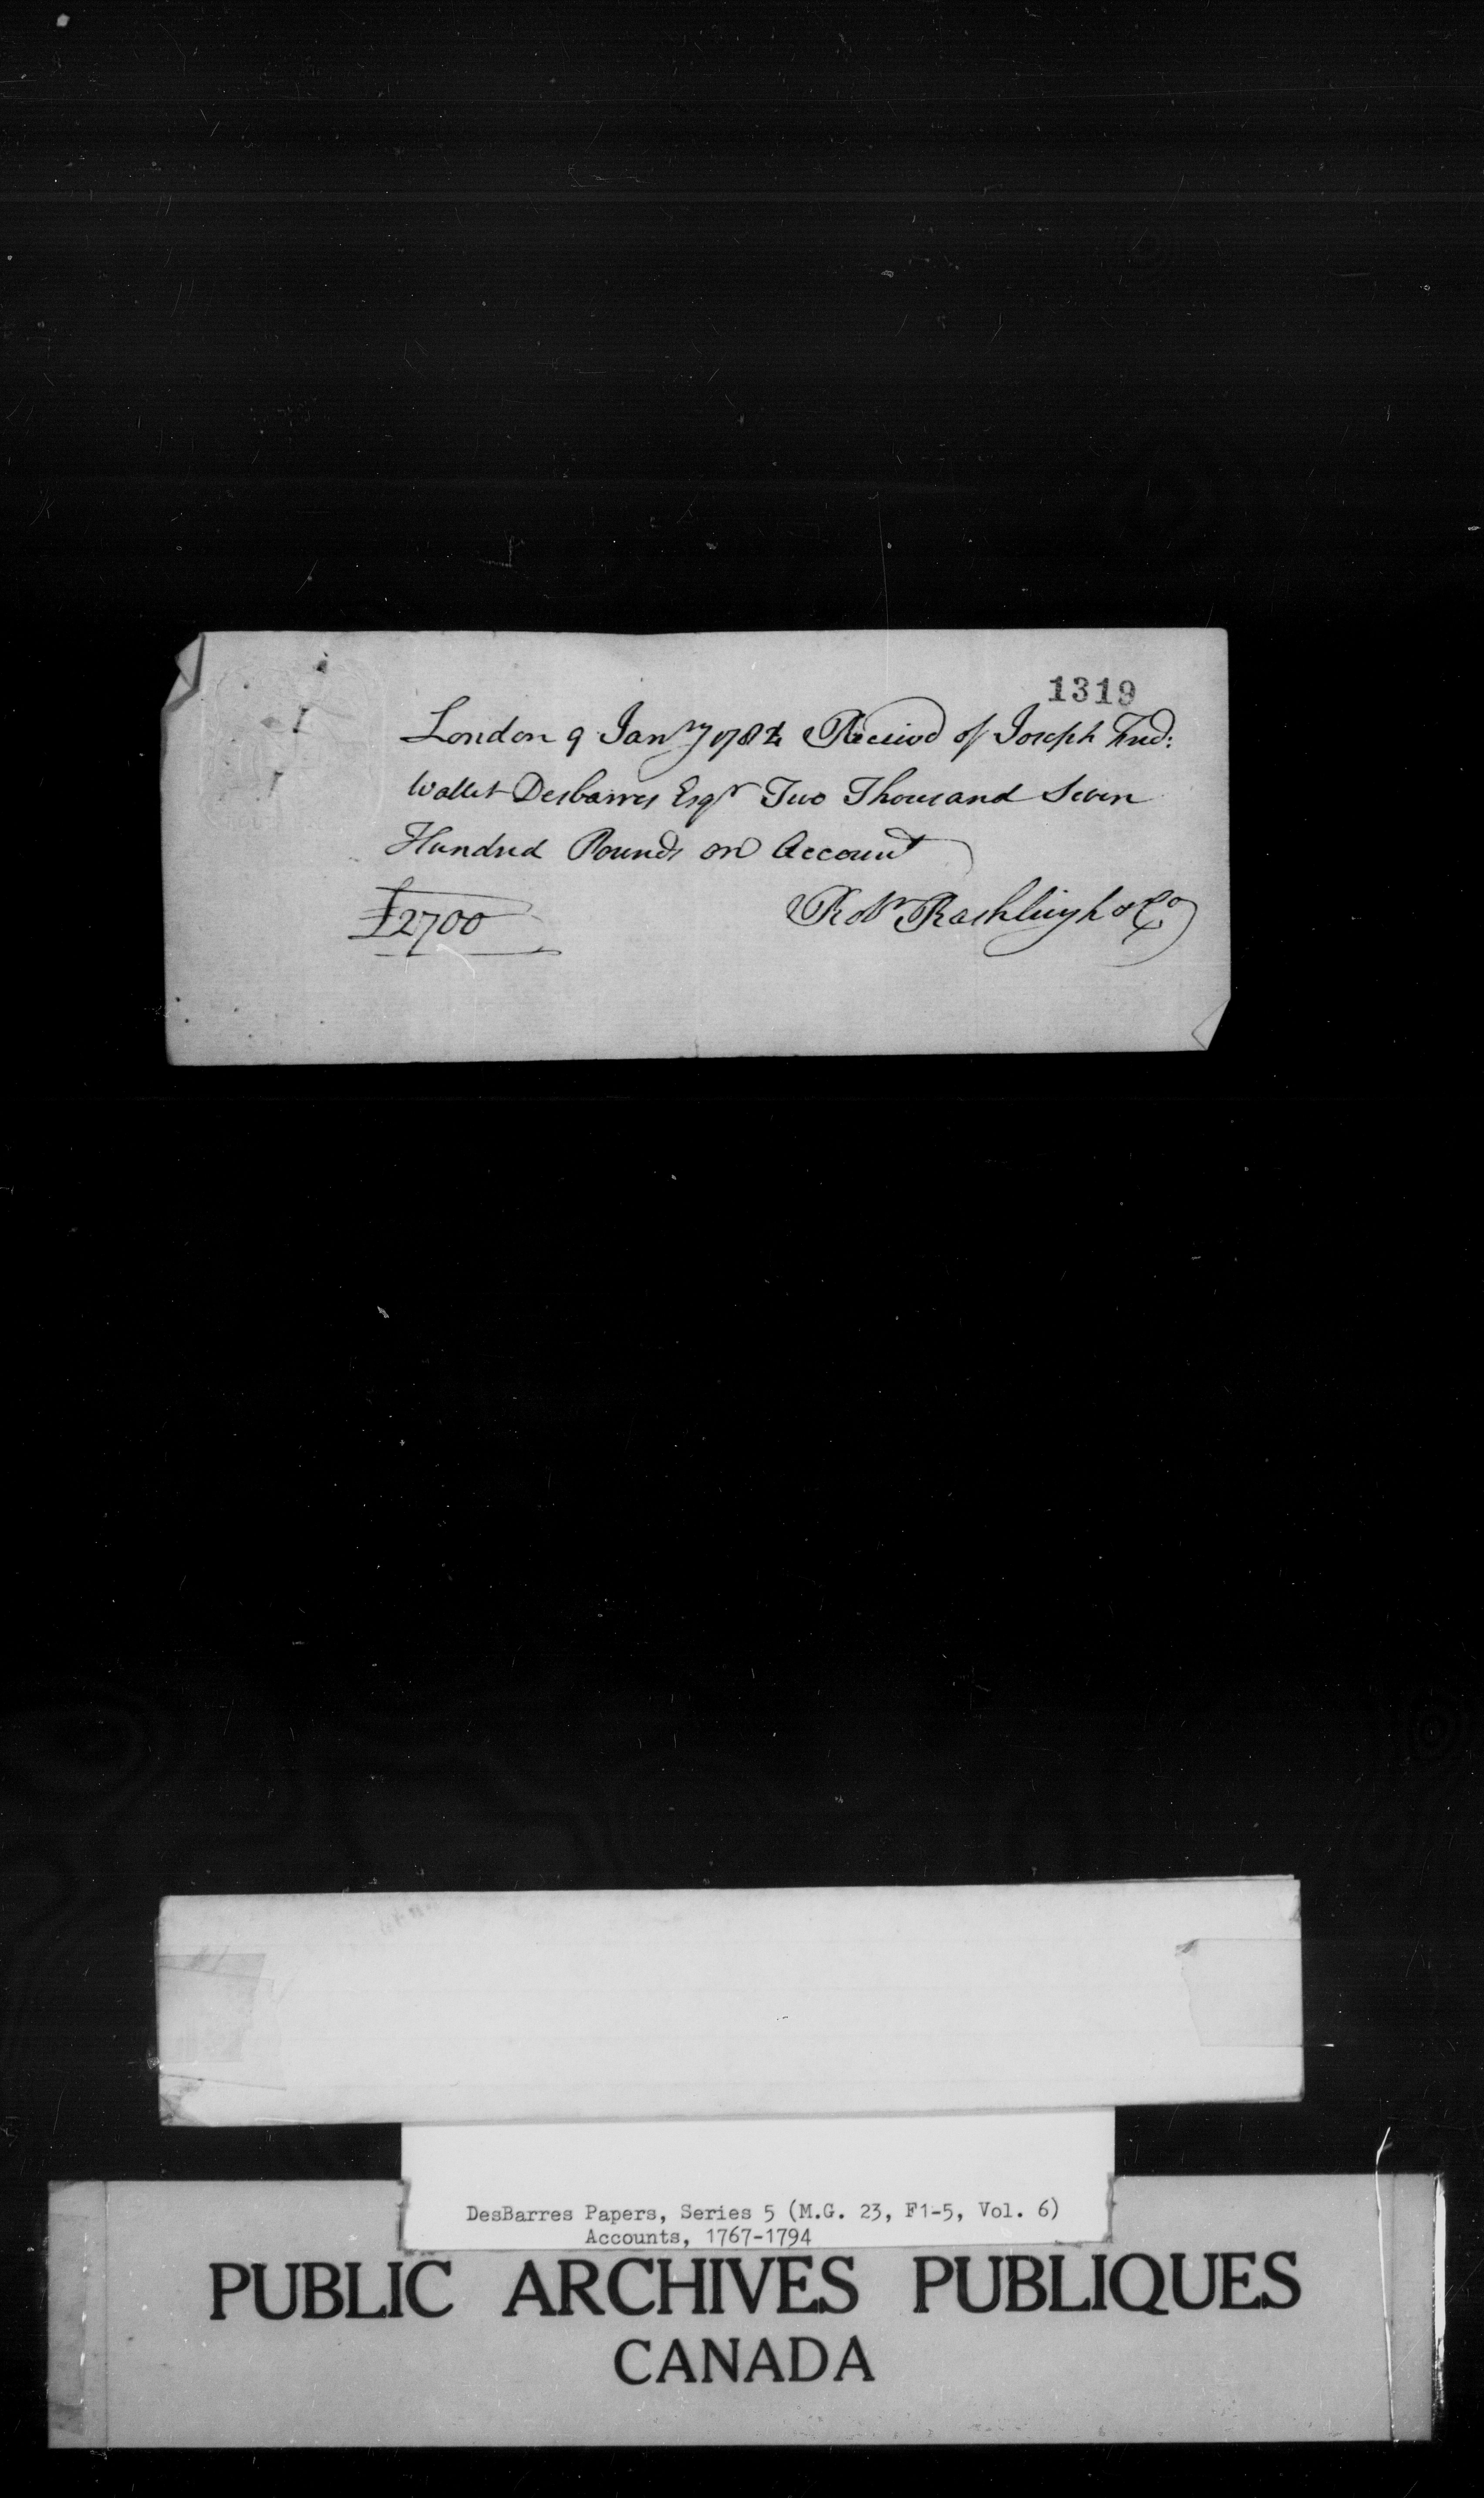 1319
London 9 Janry 1784 Received of Joseph Fred:
Wallet Desbarres Esqr Two Thousand Seven
Hundred Pounds on Account
£2700 Robt Rashleigh & Co
DesBarres Papers, Series 5 (M.G. 23, F1-5, Vol. 6)
Accounts, 1767-1794
PUBLIC ARCHIVES PUBLIQUES
CANADA